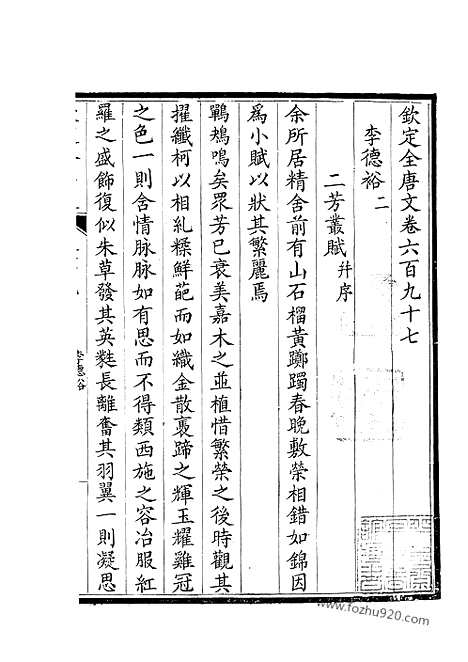 欽定全唐文卷六百九十七
李德裕二
二芳叢賦并序
余所居精舍前有山石榴黃躑躅春晚敷榮相錯如錦因
爲小賦以狀其繁麗焉
鶗鴂鳴矣眾芳已衰美嘉木之並植惜繁榮之後時觀其
擢纖柯以相糺糅鮮葩而如織金散裛蹄之輝玉耀雞冠
之色一則含情脉脉如有思而不得類西施之容冶服紅
羅之盛飾復似朱草發其英蕤長離奮其羽翼一則凝思
李德裕
www.fozhu920.com